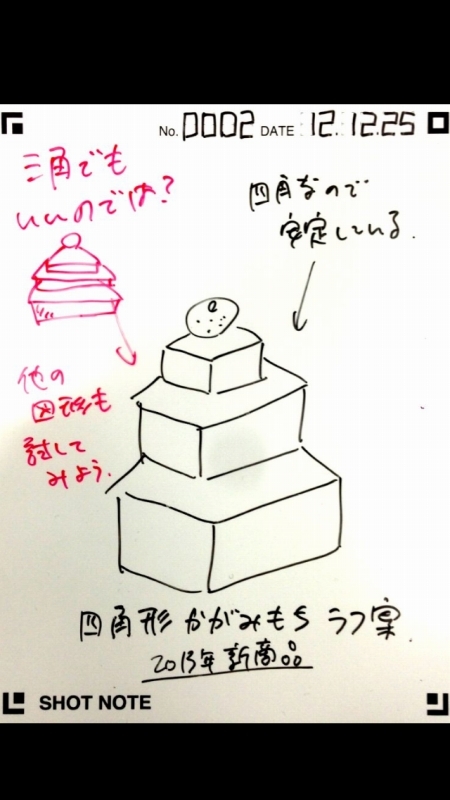 No. 0002 DATE 12.12.25
三角でも
いいのでは？
四角なので
安定している.
他の
図形も
試して
みよう.
四角形 かがみもち ラフ案.
2013年 新商品
SHOT NOTE